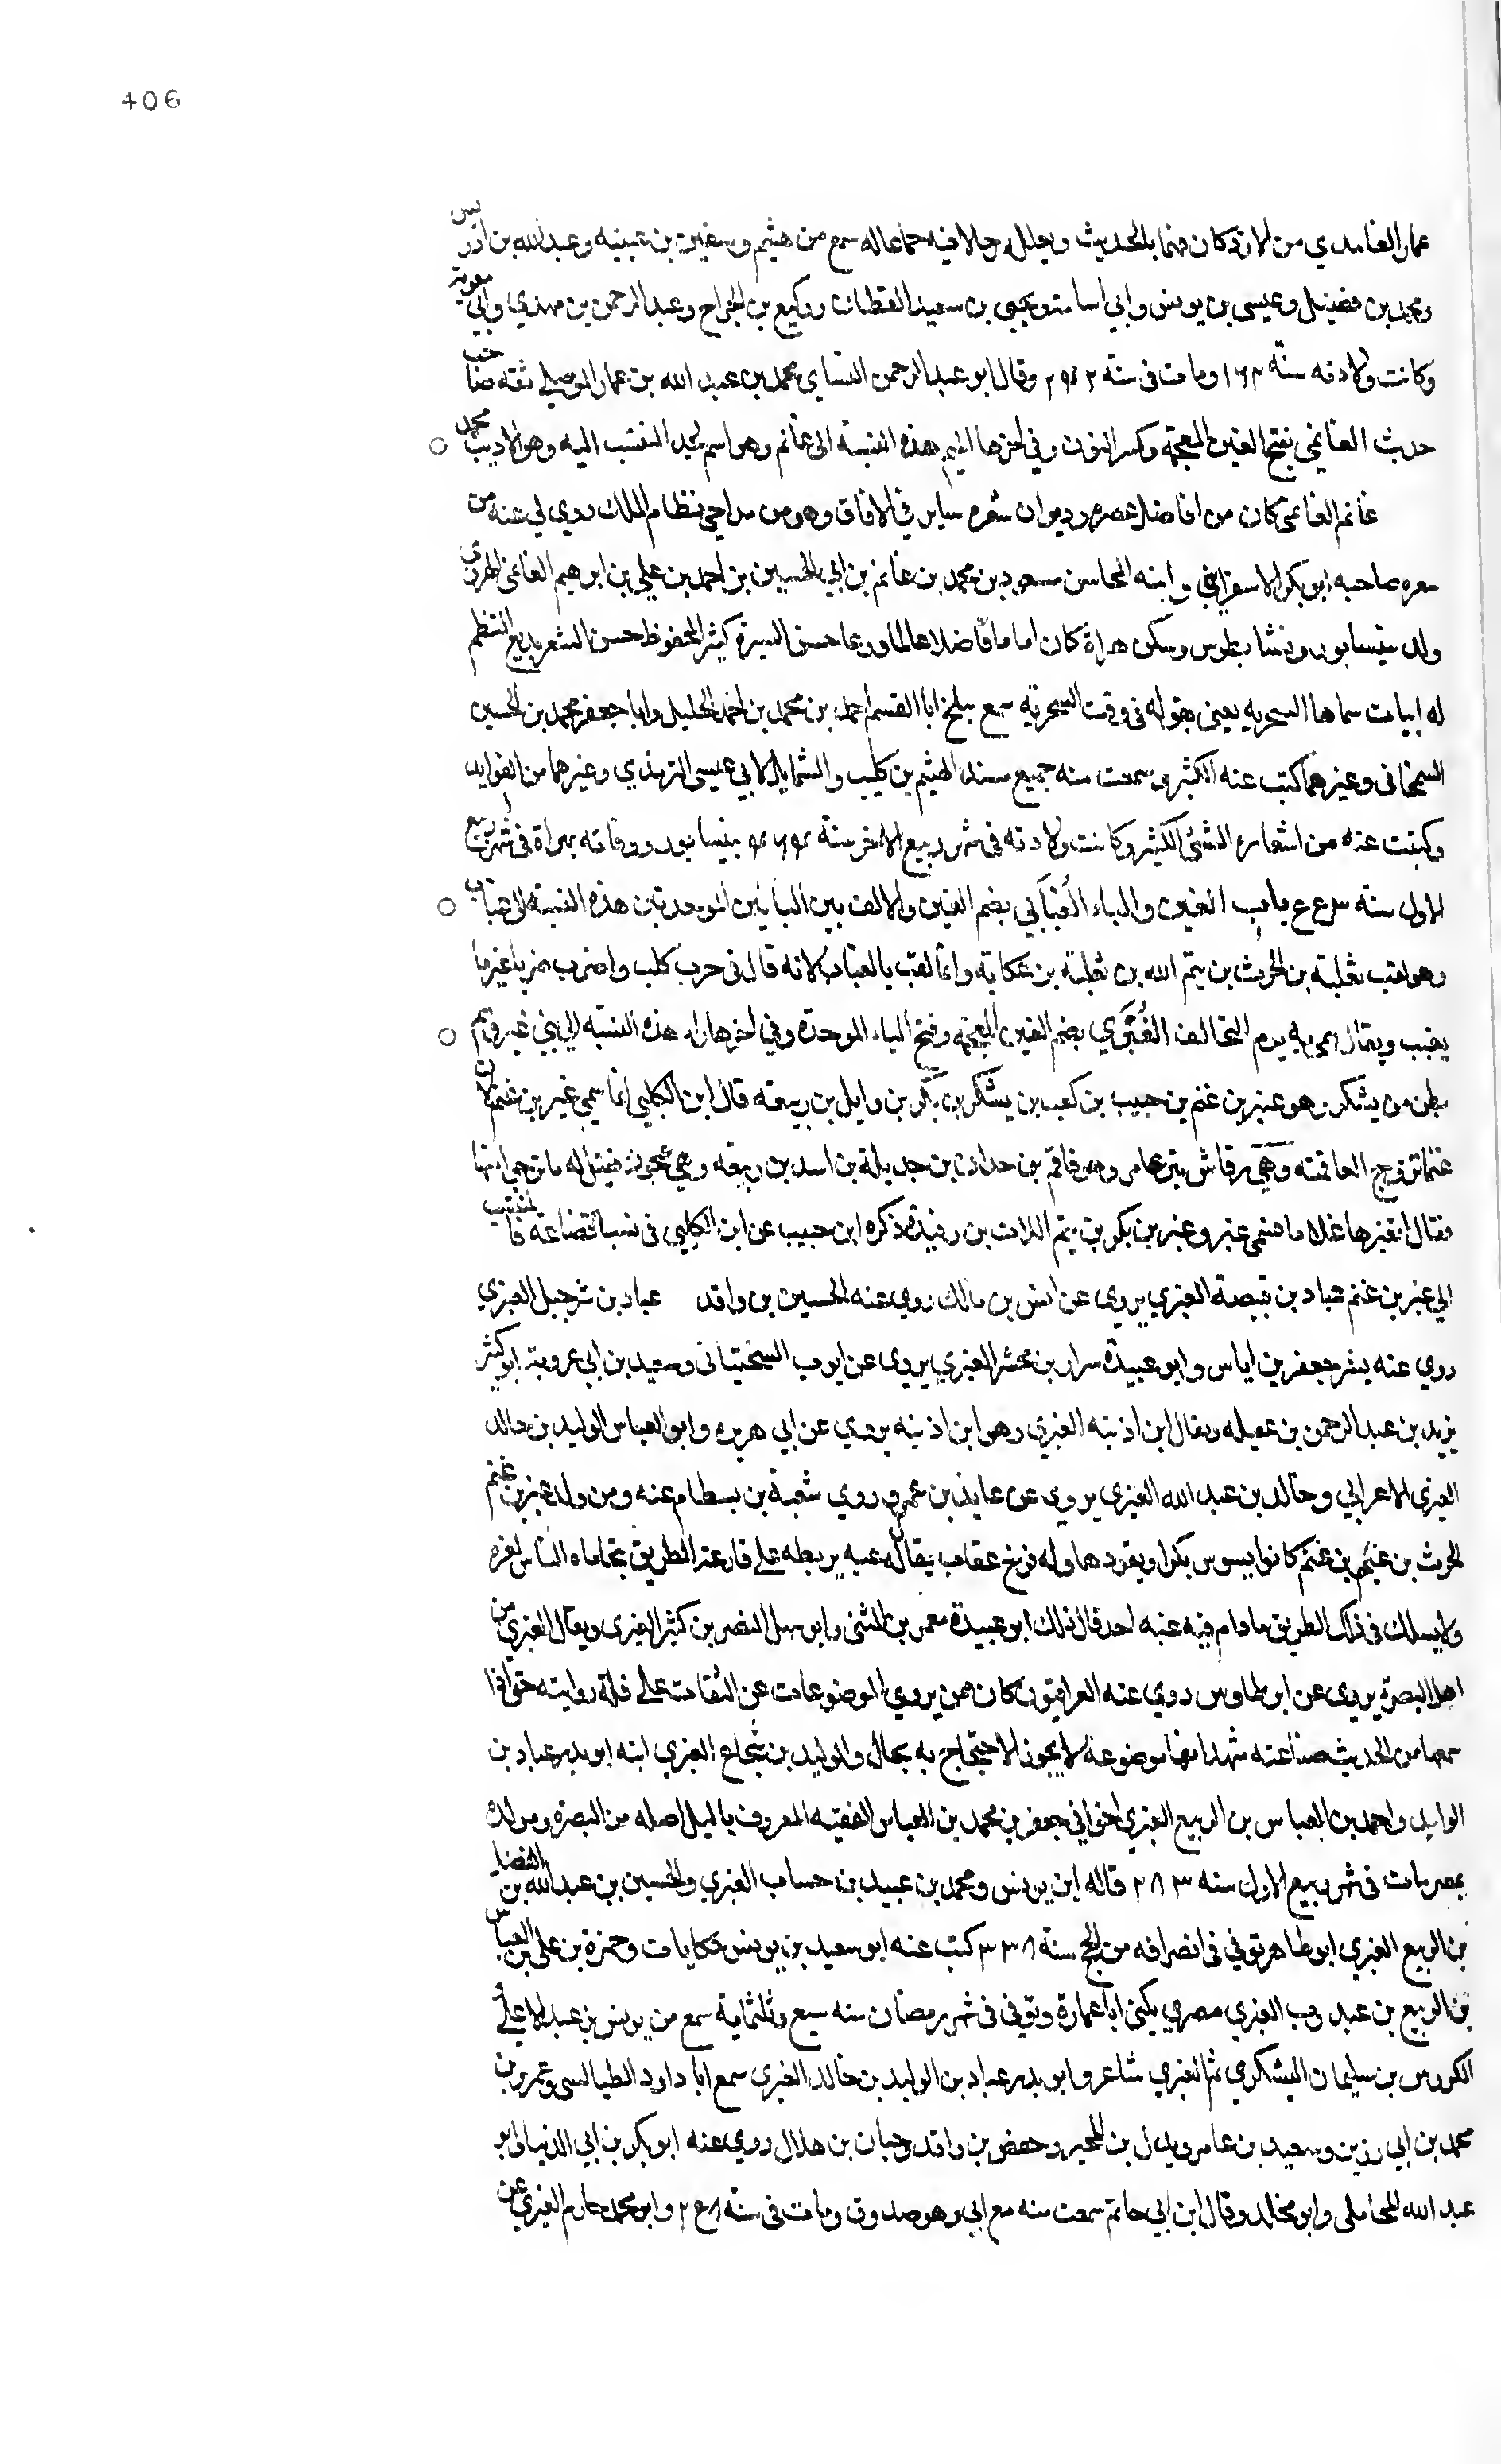 406
عمار الغامدي من الازد كان فهما بالحديث وبعلله رحالا فيه جماعا له سمع من هشيم وسفين بن عيينه وعبد الله بن ادريس
ومحمد بن فضيل وعيسى بن يونس وابي اسامة ويحيى بن سعيد القطان ووكيع بن الجراح وعبد الرحمن بن مهدي وابي معوية
وكانت ولادته سنة ١٦٢ ومات في سنة ٢٤٢ وقال ابو عبد الرحمن النساي محمد بن عبد الله بن عمار الموصلي ثقه صاحب
حديث الغانمي بفتح الغين المعجمة وكسر النون وفي اخرها الميم هذه النسبة الى غانم وهو اسم لجد المنتسب اليه وهو الاديب محمد
غانم الغانمي كان من افاضل عصره وديوان شعره ساير في الافاق وهو من مداحي نظام الملك روي لي عنه من
شعره صاحبه ابو بكر الاسفرايني وابنه المحاسن مسعود بن محمد بن غانم بن ابي الحسين بن احمد بن علي بن ابرهيم الغانمي الهروي
ولد بنيسابور ونشا بطوس وسكن هراة كان اماما فاضلا عالما ورعا حسن السيرة كثير المحفوظ حسن الشعر بديع النظم
له ابيات سماها السحريه يعني بقوله في وقت السحرية سمع ببلخ ابا القسم احمد بن محمد بن احمد الخليلي وابا جعفر محمد بن الحسين
السمنجاني وغيرهما كتب عنه الكثير وسمعت منه جميع مسند الهيثم بن كليب والشمايل لابي عيسى الترمذي وغيرهما من الفوايد
وكتبت عنه من اشعاره الشئ الكثير وكانت ولادته في شهر ربيع الاخر سنة بنيسابور ووفاته بهراة في شهر ربيع
الاول سنة باب الغين والباء الغبابي بضم الغين والالف بين البائين الموحدتين هذه النسبة الى غباب
وهو لقب ثعلبة بن الحرث بن تيم الله بن ثعلبة بن عكابة وانما لقب بالغباب لانه قال في حرب كلب واضرب ضربا غير ما
يغبب ويقال سمي به يوم التحالف الغبري بضم الغين المعجمة وفتح الباء الموحدة وفي اخرها راء هذه النسبه الى بني غبر وهم
بطن من يشكر وهو غبر بن غنم بن حبيب بن كعب بن يشكر بن بكر بن وايل بن ربيعه قال ابن الكلبي انما سمي غبر بن غنم لان
غنما تزوج الناقمية وهي رقاش بنت عامر وهو ناقم بن حدان بن جديلة بن اسد بن ربيعه وهي عجوز فقيل له ما ترجي منها
فقال اتغبرها غلاما فسمي غبر وغبر بن بكر بن تيم اللات بن رفيدة ذكره ابن حبيب عن ابن الكلبي في نسب قضاعة فالمنتسب
الى غبر بن غنم عباد بن قبيصة الغبري يروى عن انس بن مالك روى عنه الحسين بن واقد عباد بن شرحبيل الغبري
روي عنه بشر جعفر بن اياس وابو عبيدة سرار بن مجشر الغبري يروى عن ايوب السختياني وسعيد بن ابي عروبة ابو كثير
يزيد بن عبد الرحمن بن غفيله ويقال ابن اذينه الغبري وهو ابن اذينه يروي عن ابي هريره وابو العباس الوليد بن خالد
الغبري الاعرابي وخالد بن عبد الله الغبري يروى عن عايذ بن عمرو روي شعبة بن بسطام عنه ومن ولد غبر بن غنم
الحرث بن غبر بن غنم كانوا يسوس بكرا ويقودها وله فرخ عقاب يقال له عبه يربطه على قارعة الطريق يتحاماه الناس لعزه
ولا يسلك في ذلك الطريق ما دام فيه عنبه احد قال ذلك ابو عبيدة معمر بن المثنى وابو سهل النضر بن كثير الغبرى ويقال الغبري من
اهل البصرة يروى عن ابن طاوس روي عنه العراقيون كان ممن يروي الموضوعات عن الثقات على قلة روايته حتى اذا
سمعها من الحديث صناعته شهد انها موضوعة لا يجوز الاحتجاج به بحال والوليد بن شجاع الغبري ابنه ابو بدر عباد بن
الوليد واحمد بن العباس بن الربيع الغبري اخو ابي جعفر بن محمد بن العباس الفقيه المعروف بالبلبل اصله من البصرة ومولده
بمصر مات في شهر ربيع الاول سنه ٢٨٣ قاله ابن يونس ومحمد بن عبيد بن حساب الغبري والحسين بن عبد الله بن الفضل
بن الربيع الغبري ابو طاهر توفي في انصرافه من الحج سنة ٣٣٨ كتب عنه ابو سعيد بن يونس حكايات وحمزة بن علي بن العباس
بن الربيع بن عبد رب الغبري مصري يكنى ابا عمارة وتوفي في شهر رمضان سنه سبع وثلثماية سمع من يونس بن عبد الاعلى
الكروس بن سليمان اليشكري ثم الغبري شاعر وابو بدر عباد بن الوليد بن خالد الغبري سمع ابا داود الطيالسى وعمرو بن
محمد بن ابي رزين وسعيد بن عامر وبدل بن المحبر وحفص بن واقد وحبان بن هلال روى عنه ابو بكر بن ابي الدنيا وابو
عبد الله المحاملي وابو مخلد وقال ابن ابي حاتم سمعت منه مع ابي وهو صدوق ومات في سنة وابو محمد حازم الغبري عن